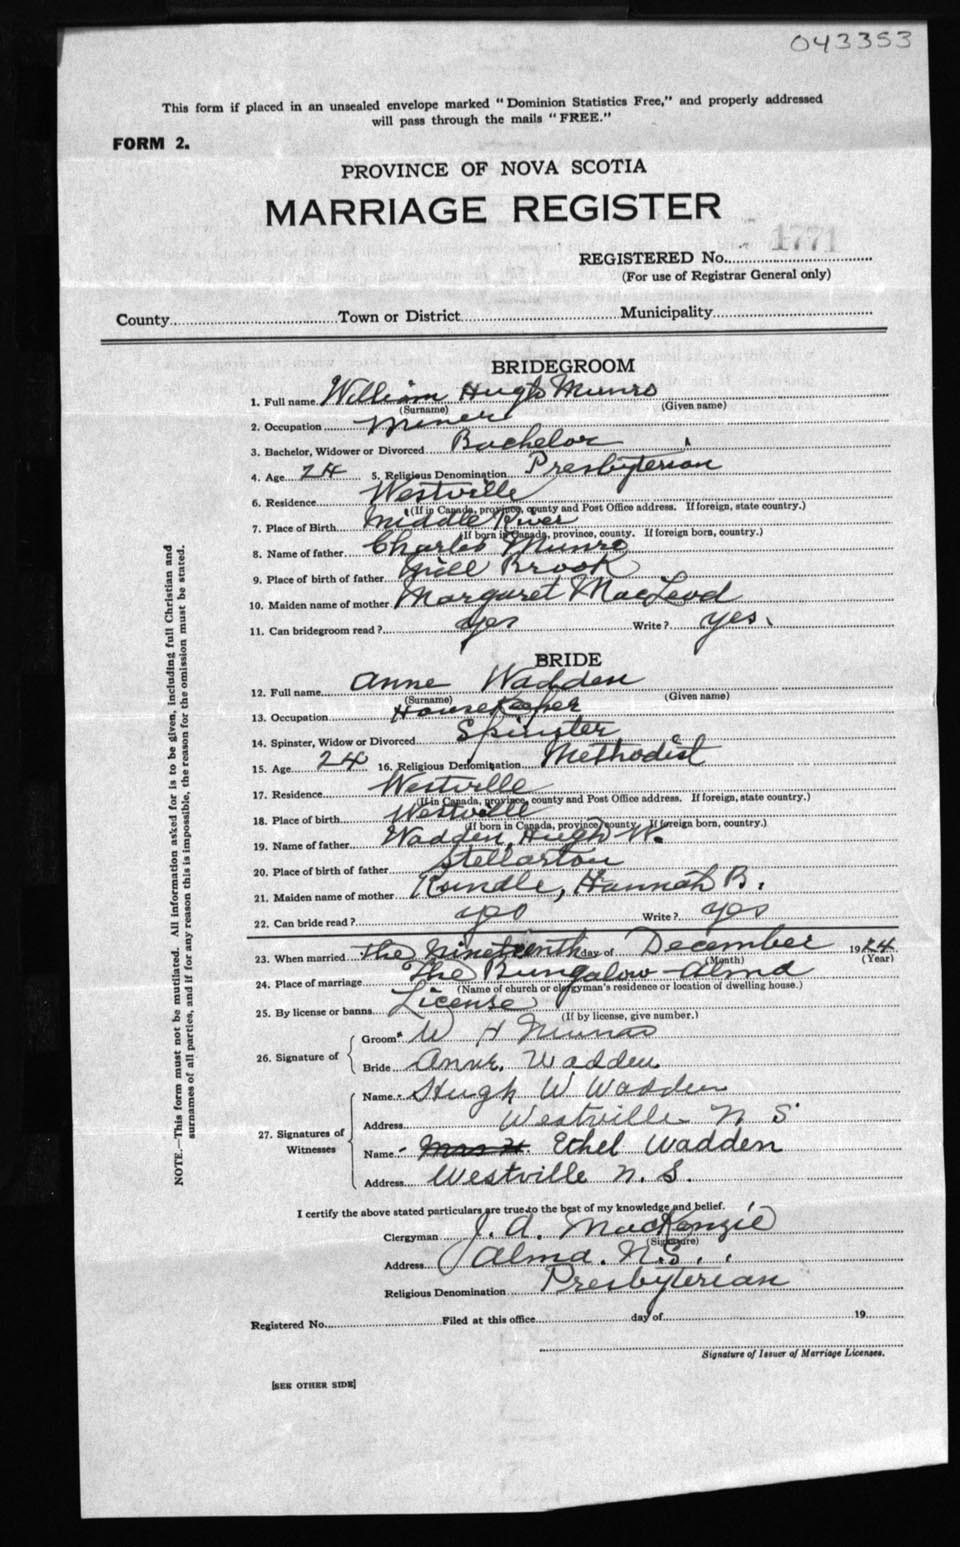 043353
This form if placed in an unsealed envelope marked "Dominion Statistics Free," and properly addressed
will pass through the mails "FREE."
FORM 2.
PROVINCE OF NOVA SCOTIA
MARRIAGE REGISTER
1771
REGISTERED No.
(For use of Registrar General only)
County Town or District Municipality
BRIDEGROOM
1. Full name William Hugh Munro
(Surname) (Given name)
2. Occupation Miner
3. Bachelor, Widower or Divorced Bachelor
4. Age 24 5. Religious Denomination Presbyterian
6. Residence Westville
(If in Canada, province, county and Post Office address. If foreign, state country.)
7. Place of Birth Middle River
(If born in Canada, province, county. If foreign born, country.)
8. Name of father Charles Munro
9. Place of birth of father Brook
10. Maiden name of mother Margaret MacLeod
11. Can bridegroom read? yes Write? yes.
BRIDE
12. Full name Anne Wadden
(Surname) (Given name)
13. Occupation Housekeeper
14. Spinster, Widow or Divorced Spinster
15. Age 24 16. Religious Denomination Methodist
17. Residence Westville
(If in Canada, province, county and Post Office address. If foreign, state country.)
18. Place of birth Westville
(If born in Canada, province, county. If foreign born, country.)
19. Name of father Wadden, Hugh W.
20. Place of birth of father Stellarton
21. Maiden name of mother Rundle, Hannah B.
22. Can bride read? yes Write? yes
23. When married the Nineteenth day of December 1924
(Month) (Year)
24. Place of marriage The Bungalow Alma
(Name of church or clergyman's residence or location of dwelling house.)
25. By license or banns License
(If by license, give number.)
26. Signature of
Groom W H Munro
Bride Anne Wadden
27. Signatures of Witnesses
Name Hugh W Wadden
Address Westville N S
Name Mrs H. Ethel Wadden
Address Westville N. S.
I certify the above stated particulars are true to the best of my knowledge and belief.
Clergyman J. A. MacKenzie
(Signature)
Address Alma. N.S.
Religious Denomination Presbyterian
Registered No. Filed at this office day of 19
Signature of Issuer of Marriage Licenses.
[SEE OTHER SIDE]
NOTE.—This form must not be mutilated. All information asked for is to be given, including full Christian and
surnames of all parties, and if for any reason this is impossible, the reason for the omission must be stated.